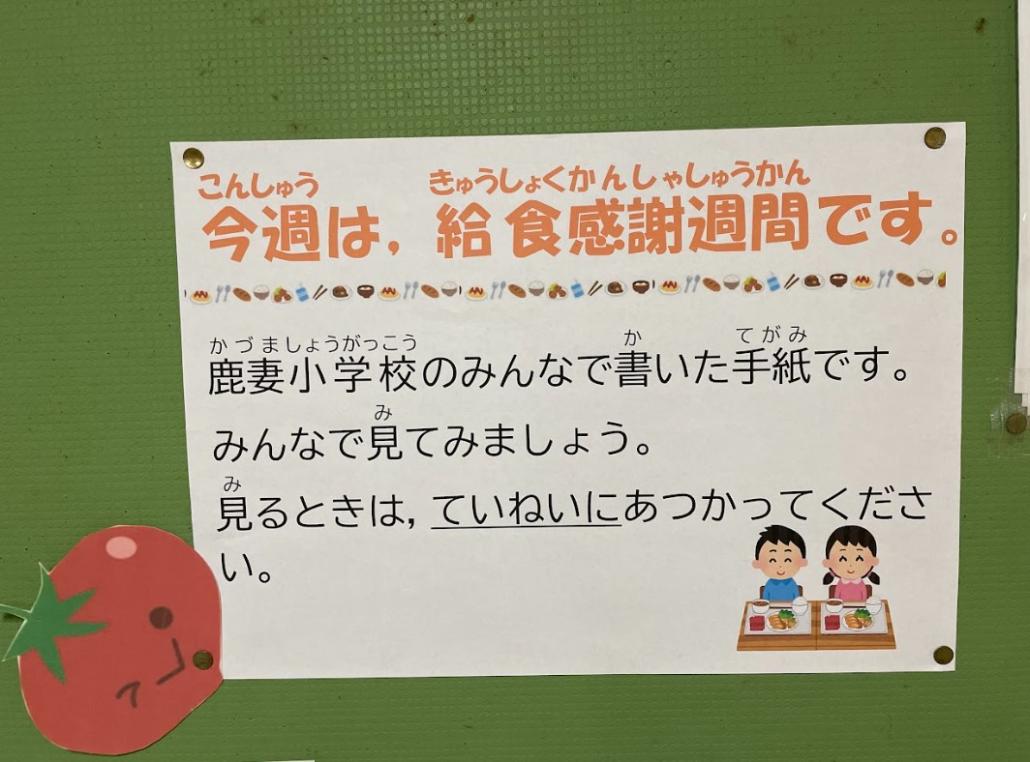 こんしゅう きゅうしょくかんしゃしゅうかん
今週は，給食感謝週間です。
かづましょうがっこう か てがみ
鹿妻小学校のみんなで書いた手紙です。
み
みんなで見てみましょう。
み
見るときは，ていねいにあつかってくださ
い。